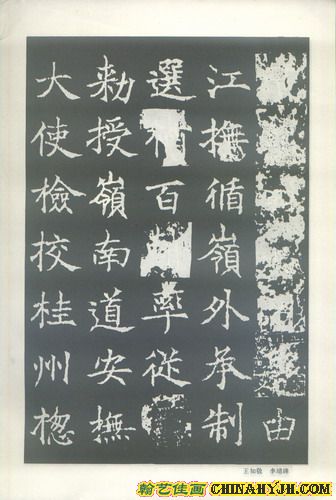 由
江撫循嶺外承制
選百率從
勑授嶺南道安撫
大使檢挍桂州揔
王知敬 李靖碑
翰艺佳画
CHINAHYJH.COM